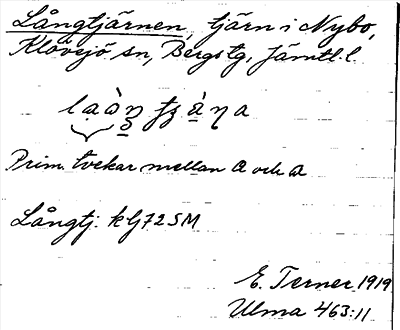 Långtjärnen, tjärn i Nybo,
Klövsjö sn, Bergs tg, Jämtl. l.
Prim. tvekar mellan a och ɑ
Långtj. kG72SM
E. Terner 1919
Ulma 463:11